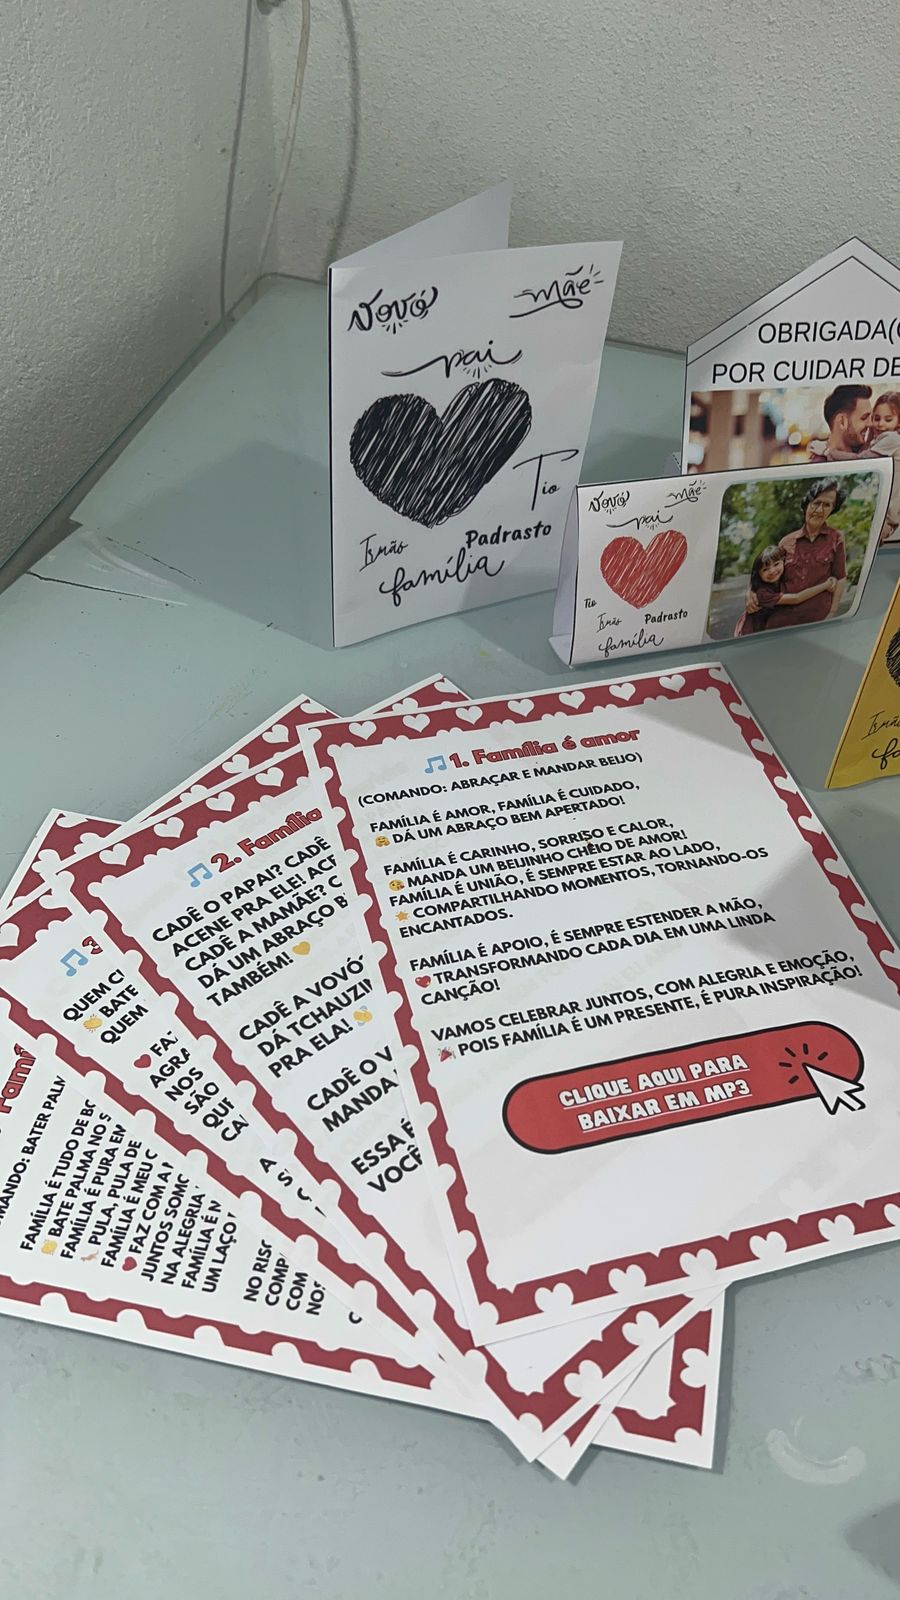 Vovó
mãe
pai
Tio
Irmão
Padrasto
família
OBRIGADA(
POR CUIDAR DE
Vovó
mãe
pai
Tio
Irmão
Padrasto
família
🎵1. Família é amor
(COMANDO: ABRAÇAR E MANDAR BEIJO)
FAMÍLIA É AMOR, FAMÍLIA É CUIDADO,
🤗 DÁ UM ABRAÇO BEM APERTADO!
FAMÍLIA É CARINHO, SORRISO E CALOR,
😘 MANDA UM BEIJINHO CHEIO DE AMOR!
FAMÍLIA É UNIÃO, É SEMPRE ESTAR AO LADO,
⭐ COMPARTILHANDO MOMENTOS, TORNANDO-OS
ENCANTADOS.
FAMÍLIA É APOIO, É SEMPRE ESTENDER A MÃO,
💖 TRANSFORMANDO CADA DIA EM UMA LINDA
CANÇÃO!
VAMOS CELEBRAR JUNTOS, COM ALEGRIA E EMOÇÃO,
🎉 POIS FAMÍLIA É UM PRESENTE, É PURA INSPIRAÇÃO!
CLIQUE AQUI PARA
BAIXAR EM MP3
🎵2. Família
CADÊ O PAPAI? CADÊ
ACENE PRA ELE!
CADÊ A MAMÃE?
DÁ UM ABRAÇO
TAMBÉM! 💛
CADÊ A VOVÓ
DÁ TCHAUZI
PRA ELA! 👋
CADÊ O
MANDA
ESSA É
VOCÊ
🎵3
QUEM
👏 BATE
QUEM
❤️
NOS
SÃO
BATER PALM
FAMÍLIA É TUDO DE
👏 BATE PALMA NO
FAMÍLIA É PURA EM
PULA, PULA DE
FAMÍLIA É MEU
❤️ FAZ COM A
JUNTOS SOMO
NA ALEGRIA
FAMÍLIA É
UM LAÇO
NO RISO
COM